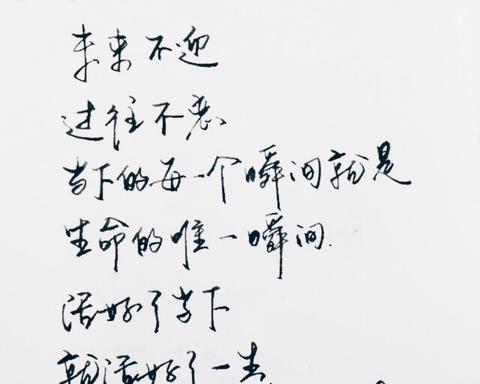 未来不迎
过往不恋
当下的每一个瞬间就是
生命的唯一瞬间.
活好了当下
就活好了一生